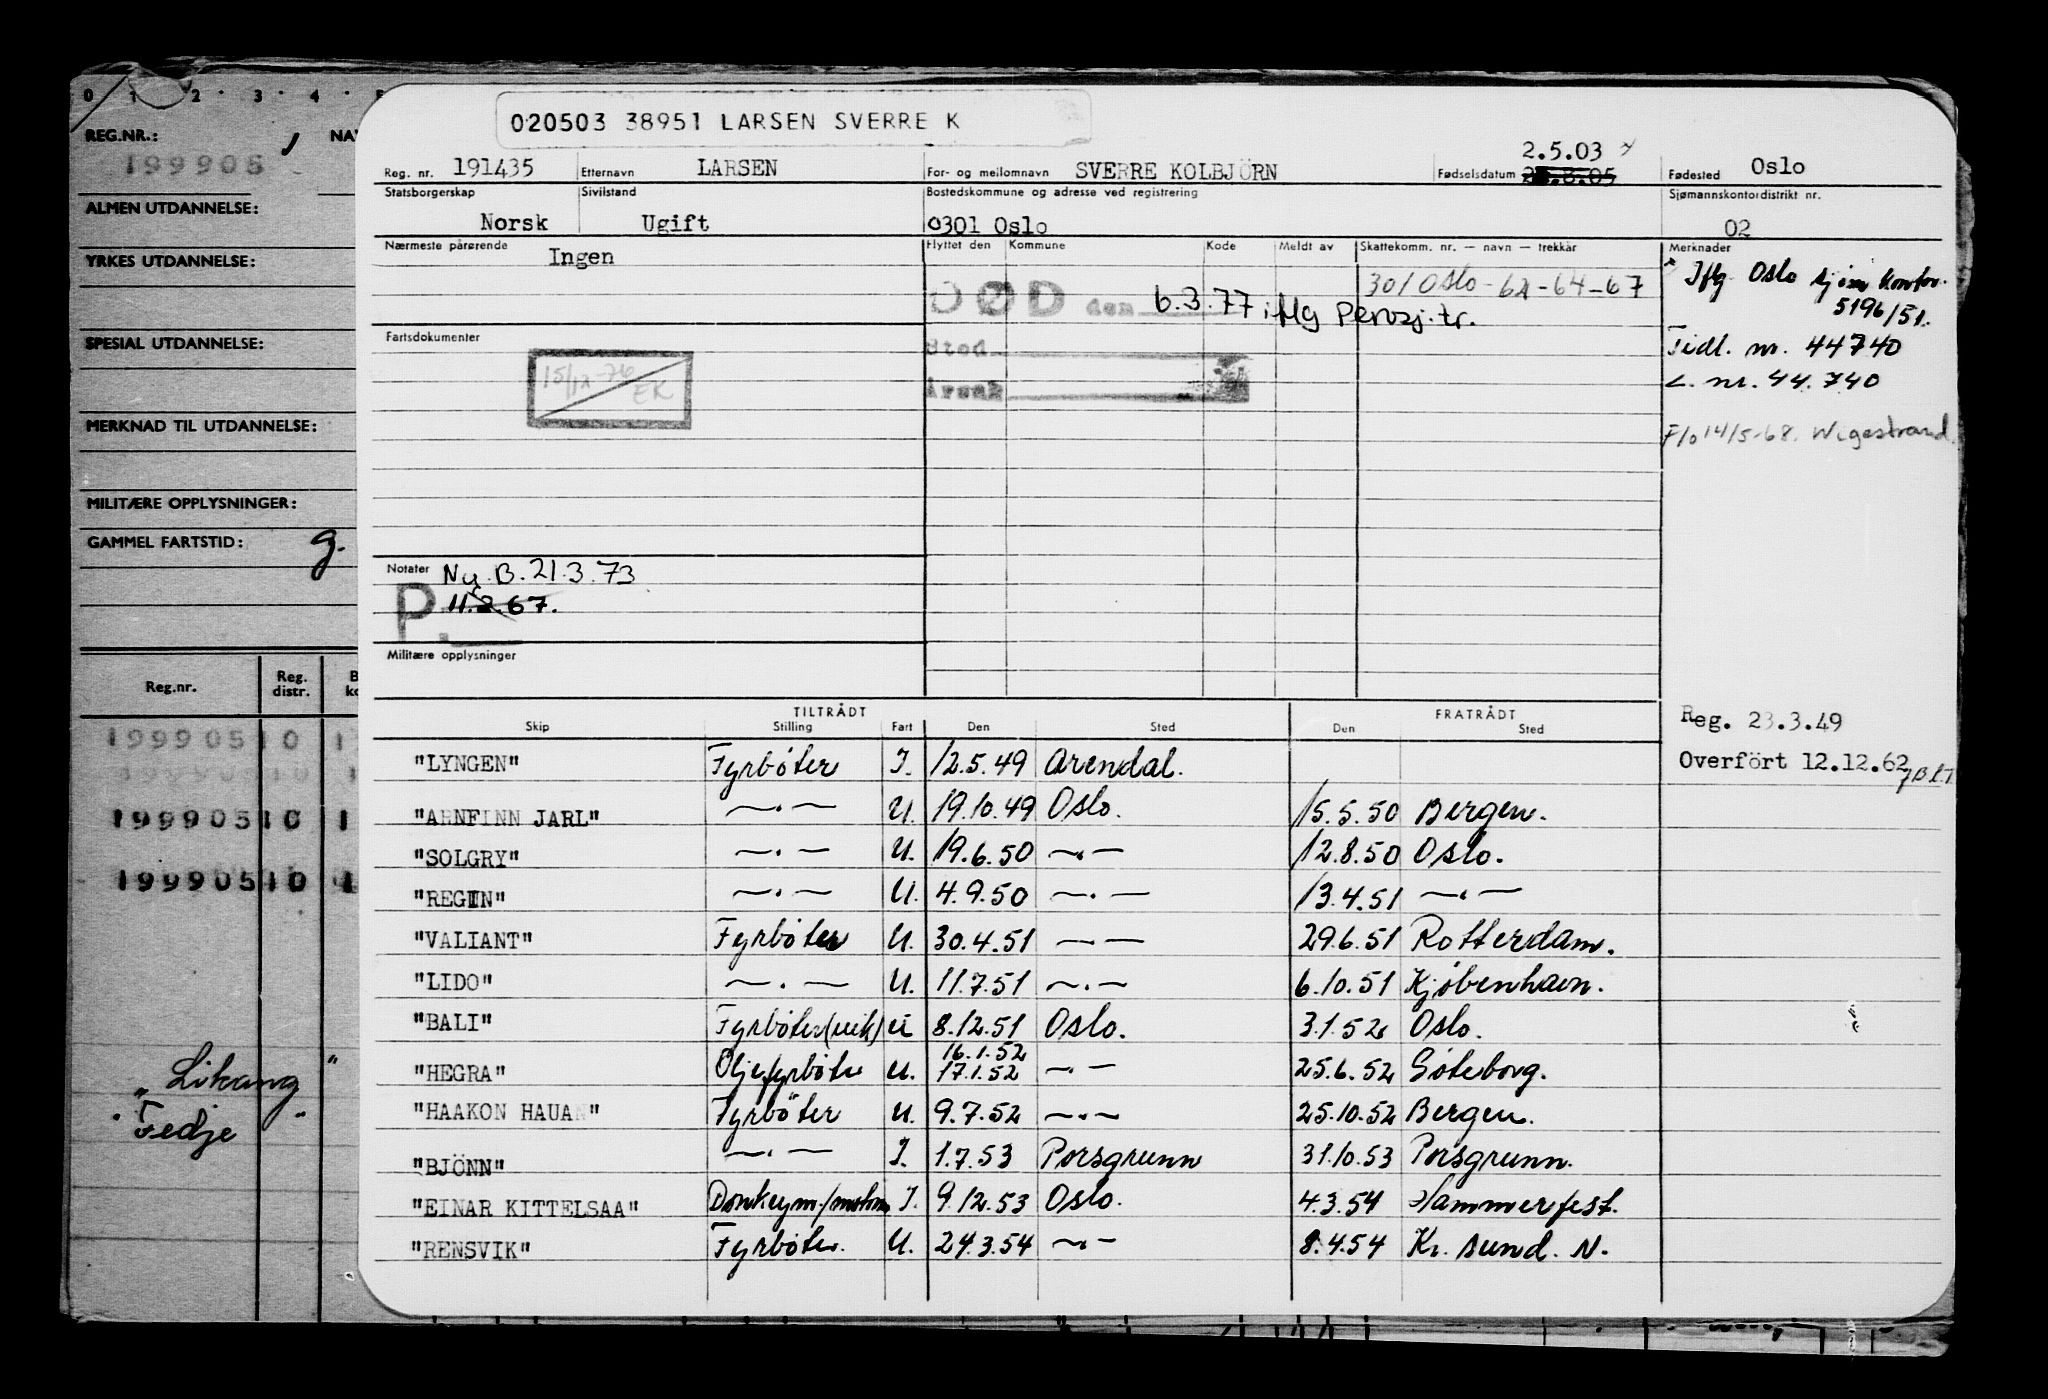 0 1 2 3 4 5
REG.NR.: NA
199905
ALMEN UTDANNELSE:
YRKES UTDANNELSE:
SPESIAL UTDANNELSE:
MERKNAD TIL UTDANNELSE:
MILITÆRE OPPLYSNINGER:
GAMMEL FARTSTID: g.
Reg.nr. Reg. distr. B ko
199905 10 1
199905 10 1
199905 10 1
199905 10 1
"Likang"
"Fedje"
020503 38951 LARSEN SVERRE K
Reg. nr. 191435 Etternavn LARSEN For- og mellomnavn SVERRE KOLBJÖRN Fødselsdatum 2.5.03 Fødested Oslo
Statsborgerskap Norsk Sivilstand Ugift Bostedskommune og adresse ved registrering 0301 Oslo Sjømannskontordistrikt nr. 02
Nærmeste pårørende Ingen Flyttet den Kommune Kode Meldt av Skattekomm. nr. — navn — trekkår Merknader
301 Oslo - 62-64-67
DØD den 6.3.77 iflg Persj.tr.
Sted
Årsak
Iflg Oslo sjøm kontor.
5196/51.
Tidl. nr. 44740
L. nr. 44.740
F/o 14/5-68. Wigestrand.
Fartsdokumenter
15/12-76 EK
Notater Ny. B. 21.3.73
P. 11.2.67.
Militære opplysninger
Reg. 23.3.49
Overfört 12.12.62
TILTRÅDT FRATRÅDT
Skip Stilling Fart Den Sted Den Sted
"LYNGEN" Fyrbøter I. 12.5.49 Arendal.
"ARNFINN JARL" —.— U. 19.10.49 Oslo. 15.5.50 Bergen.
"SOLGRY" —.— U. 19.6.50 —.— 12.8.50 Oslo.
"REGIN" —.— U. 4.9.50 —.— 13.4.51 —.—
"VALIANT" Fyrbøter U. 30.4.51 —.— 29.6.51 Rotterdam.
"LIDO" —.— U. 11.7.51 —.— 6.10.51 Kjøbenhavn.
"BALI" Fyrbøter (vik) U 8.12.51 Oslo. 3.1.52 Oslo.
"HEGRA" Oljefyrbøter U. 16.1.52 17.1.52 —.— 25.6.52 Gøteborg.
"HAAKON HAUAN" Fyrbøter U. 9.7.52 —.— 25.10.52 Bergen.
"BJÖNN" —.— I. 1.7.53 Porsgrunn 31.10.53 Porsgrunn.
"EINAR KITTELSAA" Donkeym./motorm I. 9.12.53 Oslo. 4.3.54 Hammerfest.
"RENSVIK" Fyrbøter. U. 24.3.54 —.— 8.4.54 Kr. sund. N.